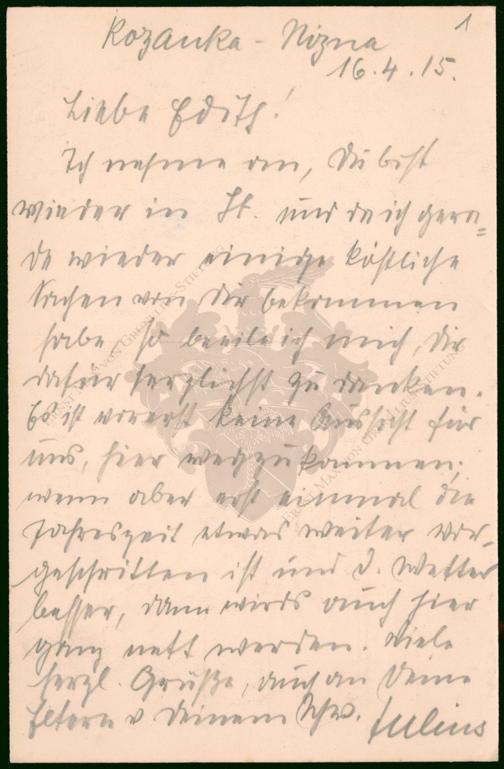 1
Kozanka-Nizna
16.4.15.
Liebe Edith!
Ich nehme an, Du bist
wieder in St. und da ich gera=
de wieder einige köstliche
Sachen von Dir bekommen
habe, so beeile ich mich, Dir
dafür herzlichst zu danken.
Es ist vorerst keine Aussicht für
uns, hier wegzukommen;
wenn aber erst einmal die
Jahreszeit etwas weiter vor-
geschritten ist und d. Wetter
besser, dann wirds auch hier
ganz nett werden. Viele
herzl. Grüße, auch an Deine
Eltern v Deinem Schw. Julius